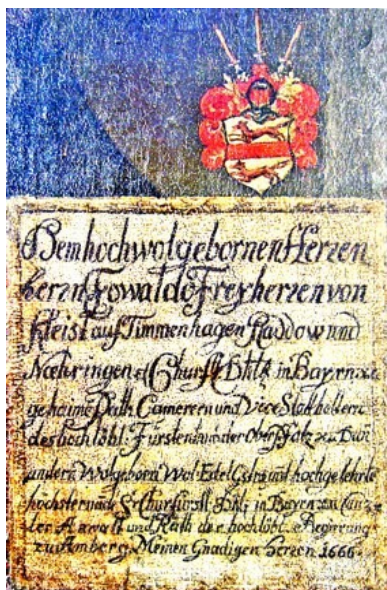 Dem hochwolgebornen Herren
herrn Ewaldo Freyherren von
Kleist auf Timmenhagen Raddow und
Nœhringen Churfl. Dhlt. in Bayrn
gehaime Rath Camerern und Vice Stadthaltern
des hochlöbl. Fürstentum der Oberpfalz
andern Wolgeborn Wol Edel und hochgelehrte
Churfürstl. Dhlt. in Bayrn
und Rath hochlöbl. Regierung
zu Amberg. Meinen Gnädigen herren 1666